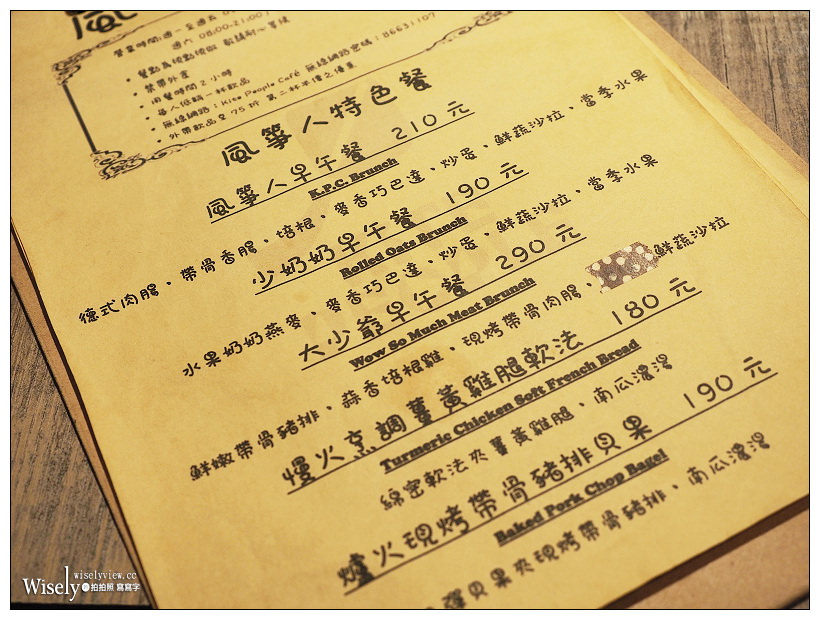 風
營業時間:週一至週五
週六 08:00-21:00
餐點為現點現做 敬請耐心等候
禁帶外食
用餐時間2小時
每人低銷一杯飲品
無線網路:Kite People Café 無線網路密碼:86631107
外帶飲品享75折 第二杯半價之優惠
風箏人特色餐
風箏人早午餐 210 元
K.P.C. Brunch
德式肉腸、帶骨香腸、培根、麥香巧巴達、炒蛋、鮮蔬沙拉、當季水果
少奶奶早午餐 190 元
Rolled Oats Brunch
水果奶奶燕麥、麥香巧巴達、炒蛋、鮮蔬沙拉、當季水果
大少爺早午餐 290 元
Wow So Much Meat Brunch
鮮嫩帶骨豬排、蒜香培根雞、現烤帶骨肉腸、鮮蔬沙拉
慢火烹調薑黃雞腿軟法 180 元
Turmeric Chicken Soft French Bread
綿密軟法夾薑黃雞腿、南瓜濃湯
爐火現烤帶骨豬排貝果 190 元
Baked Pork Chop Bagel
彈貝果夾現烤帶骨豬排、南瓜濃湯
wiselyview.cc
Wisely 拍拍照 寫寫字